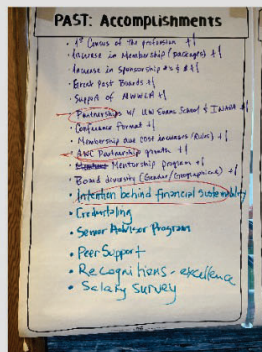 PAST: Accomplishments
• 1st Census of the profession +1
• Increase in Membership (packages) +1
• Increase in Sponsorship #s & $ +1
• Great Past Boards +1
• Support of
• Partnerships w/ UW Evans School &
• Conference format +1
• Membership due cost increases/Rules) +1
• AWC Partnership growth +1
• Mentorship program +1
• Board diversity (Gender/Geographical) +1
• Intention behind financial sustainability
• Credentialing
• Senior Advisor Program
• Peer Support
• Recognitions - excellence
• Salary survey